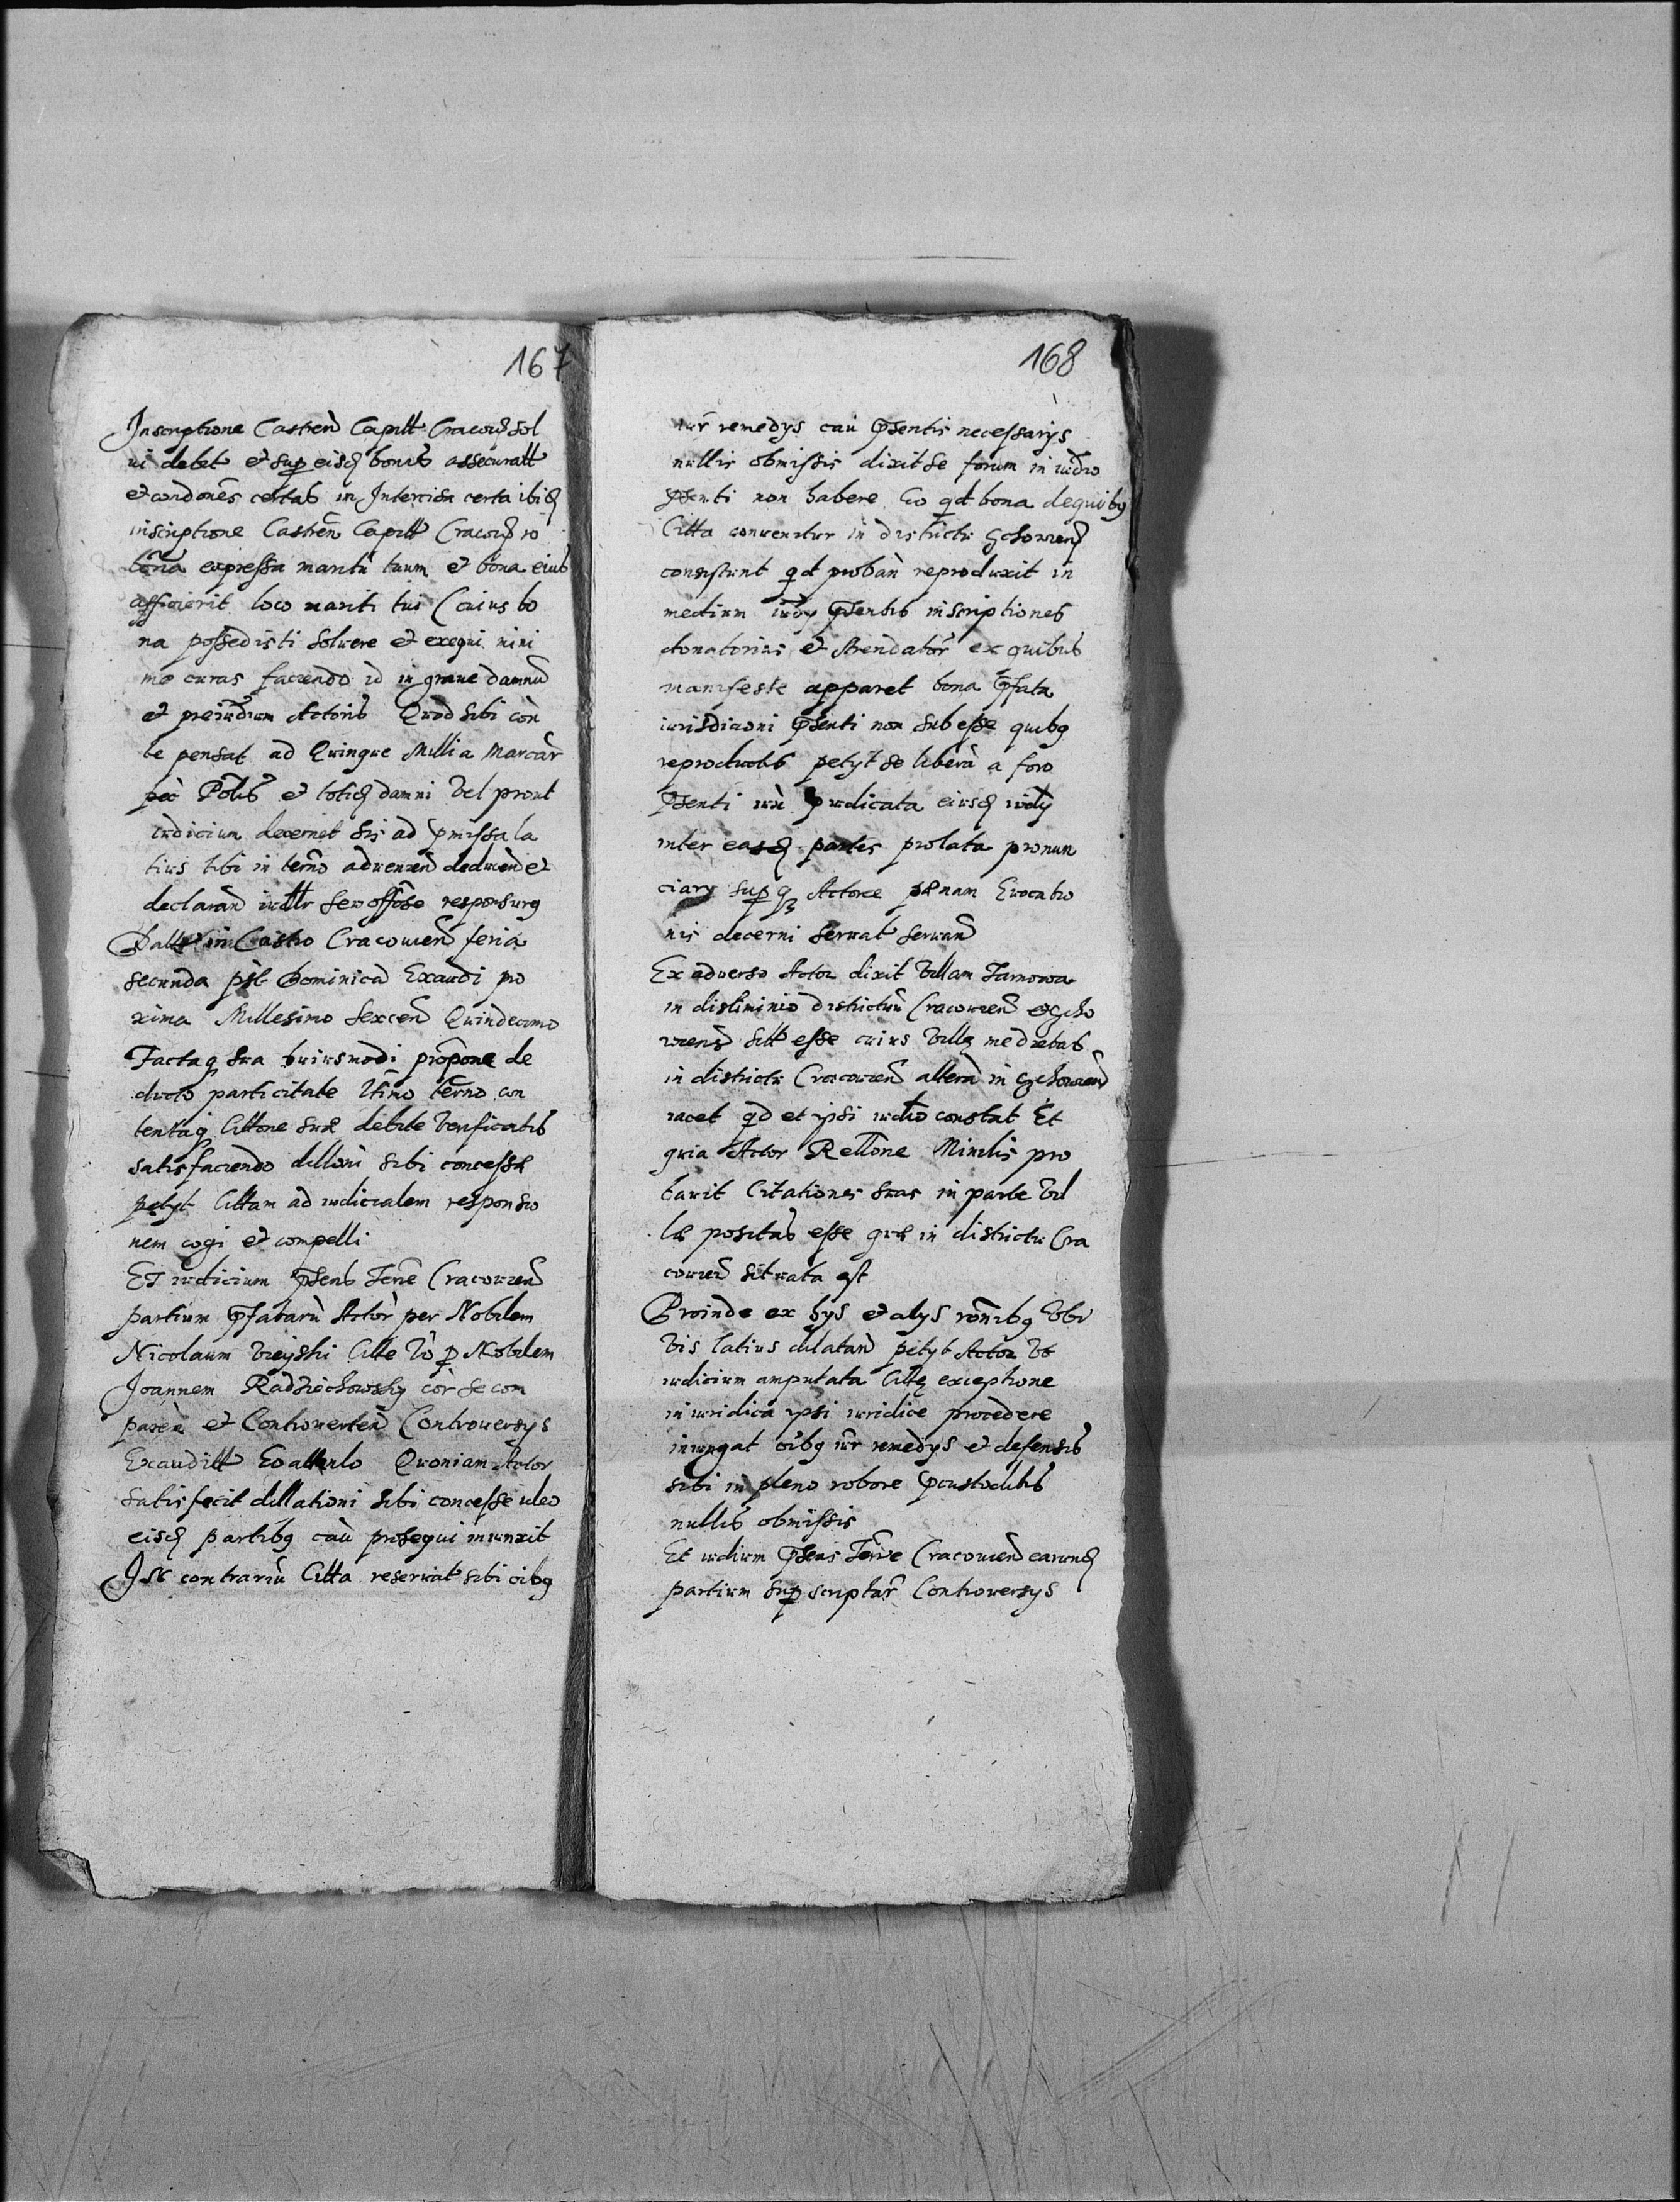 167
Inscriptione Castren Capitt Cracou sol
ui debet et sup eisd bonis assecuratt
et condones certas in Intercisa certa ibid
inscriptione Castren Capitt Cracou ro
bona expressa maritu tuum et bona eius
afficierit loco mariti tui Cuius bo
na possedisti soluere et exequi mini
me curas faciendo id in graue damnu
et preiudium Actoris Quod sibi con
te pensat ad Quinque Millia Marcar
pec Polis et totid damni Vel prout
iudicium decernet Sis ad pmissa la
tius tibi in termo aduenien deducen et
declaran iudltr se offose responsurq
Datt in Castro Cracouien feria
secunda pst Dominica Exaudi pro
xima Millesimo Sexcen Quindecimo
Factaq sua huiusmodi propone de
ducto particitate Vtimo termo con
tentaq Cittone sua debite Verificatis
satisfaciendo dillioni sibi concessæ
petyt Cittam ad iudicialem responsio
nem cogi et compelli
Et iudicium psens Terre Cracouien
partium pfataru Actor per Nobilem
Nicolaum Vieyski Citte Vo p Nobilem
Joannem Radziechowsky cor se com
paren et Controuerten Controuersys
Exauditt Eo attento Quoniam Actor
satisfecit dillationi sibi concesse ideo
eisd partibq cau prosequi iniunxit
In contrariu Citta reseruat sibi oibq
168
iur remedys cau psentis necessarys
nullis obmissis dixit se forum in iudio
psenti non habere Eo qd bona de quibq
Citta conuenitur in districtu Xchouien
consistunt qd proban reproduxit in
medium iudy psentis inscriptiones
donatorias et Arendator ex quibus
manifeste apparet bona pfata
iurisdicioni psenti non subesse quibq
reproductis petyt se libera a foro
psenti iux iudicata eiusd iudy
inter easd partes prolata pronun
ciary sup q Actoree pænam Euocatio
nis decerni seruat seruan
Ex aduerso Actor dixit Villam Tarnowa
in disliminio districtuu Cracouien et Xcho
uiens sitt esse cuius Villę medietas
in districtu Cracouien altera in Xchouien
iacet qd et ipsi iudio constat Et
quia Actor Rellone Minlis pro
bauit Citationes suas in parte Vil
læ positas esse quæ in districtu Cra
couien situata est
Proinde ex hys et alys ronibq Vbi
Vis latius dilatan petyt Actor Vt
iudicium amputata Cittę exceptione
iniuridica ipsi iuridice procedere
iniungat oibq iur remedys et defensis
sibi in pleno robore pcustoditis
nullis obmissis
Et iudium psens Terre Cracouien earund
partium sup scriptar Controuersys